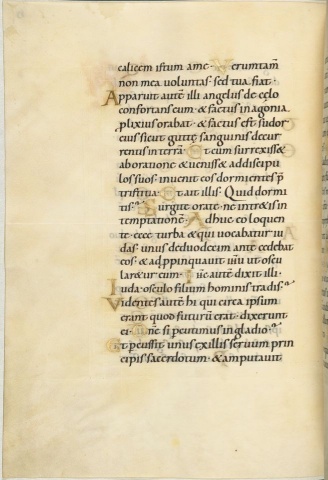 calicem istum a me · Verumtam̄
non mea voluntas · sed tua fiat ·
Apparuit autē illi angelus de cęlo
confortans eum · & factus in agonia
plixius orabat · & factus est sudor
eius sicut guttę sanguinis decur
rentis in terrā · Et cum surrexiss&
ab oratione & veniss& ad discipu
los suos · invenit eos dormientes p̄
tristitia · Et ait illis · Quid dormi
tis · Surgite orate · ne intr&is in
temptationē · Adhuc eo loquen
te · ecce turba & qui vocabatur iu
das · unus de duodecim ante cedebat
eos · & adppinquavit iħu ut oscu
lar&ur eum · iħc autē dixit illi ·
Iuda · osculo filium hominis tradis ·
Videntes autē hi qui circa ipsum
erant quod futurū erat · dixerunt
ei · Dn̄e si percutimus in gladio ·
Et percussit unus ex illis servum prin
cipis sacerdotum · & amputavit